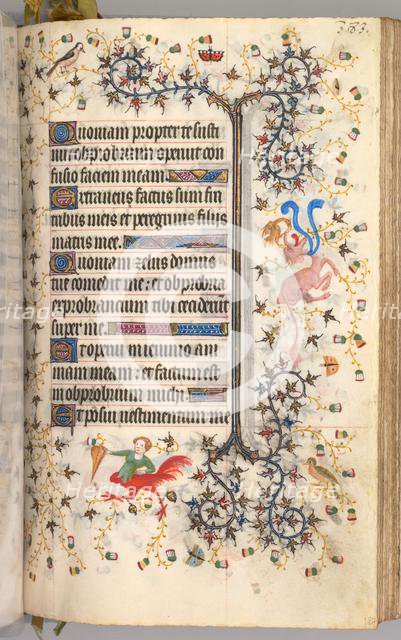 383.
Quoniam propter te susti
nui obprobrium operuit con
fusio faciem meam
Extraneus factus sum fra
tribus meis et peregrinus filiis
matris mee.
Quoniam zelus domus
tue comedit me: et obprobria
exprobrancium tibi ceciderunt
super me.
Et operui in ieiunio ani
mam meam: et factum est
in obprobrium michi.
Et posui vestimentum me
Heritage Images